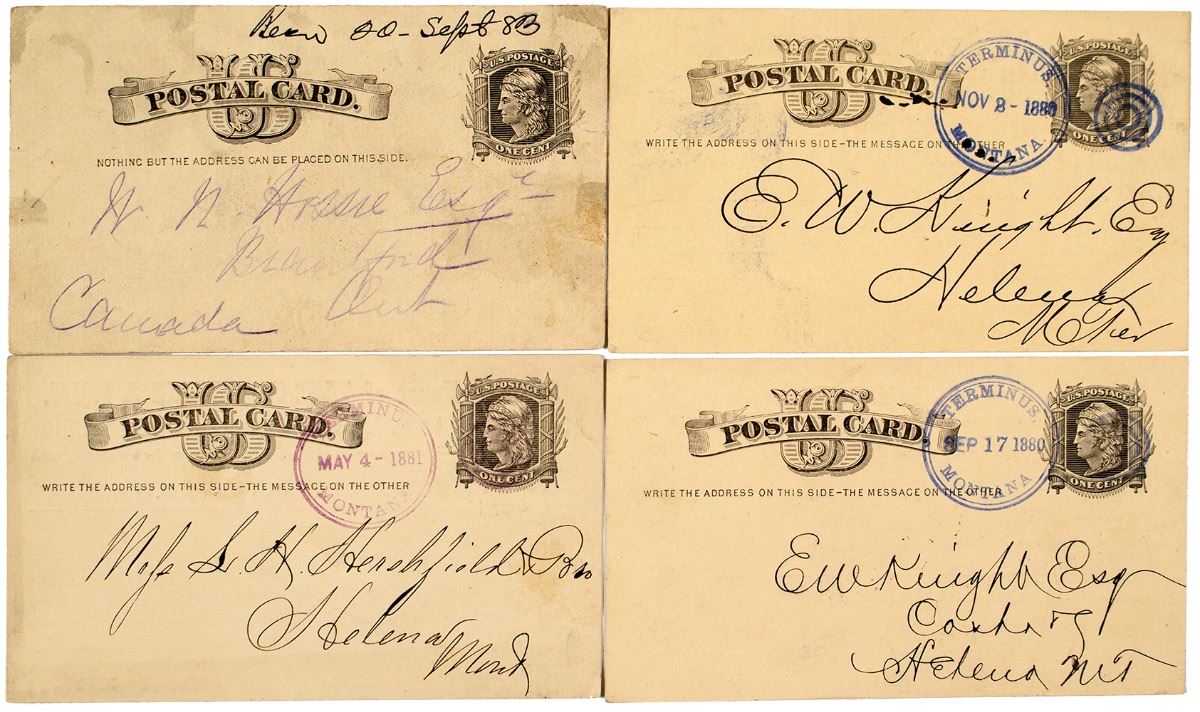 Recd 20 - Sept 83
US
POSTAL CARD.
U.S. POSTAGE
ONE CENT
NOTHING BUT THE ADDRESS CAN BE PLACED ON THIS SIDE.
W. N. Hossie Esqr
Brantford
Ont
Canada
US
POSTAL CARD.
TERMINUS,
NOV 8 - 1880
MONTANA.
U.S. POSTAGE
ONE CENT
WRITE THE ADDRESS ON THIS SIDE - THE MESSAGE ON THE OTHER
E. W. Knight. Esq
Helena
M Ter
US
POSTAL CARD.
TERMINUS
MAY 4 - 1881
MONTANA
U.S. POSTAGE
ONE CENT
WRITE THE ADDRESS ON THIS SIDE - THE MESSAGE ON THE OTHER
L. H. Hershfield & Bro
Helena
Mont
US
POSTAL CARD.
TERMINUS,
SEP 17 1880
MONTANA.
U.S. POSTAGE
ONE CENT
WRITE THE ADDRESS ON THIS SIDE - THE MESSAGE ON THE OTHER
E W Knight Esq
Helena MT